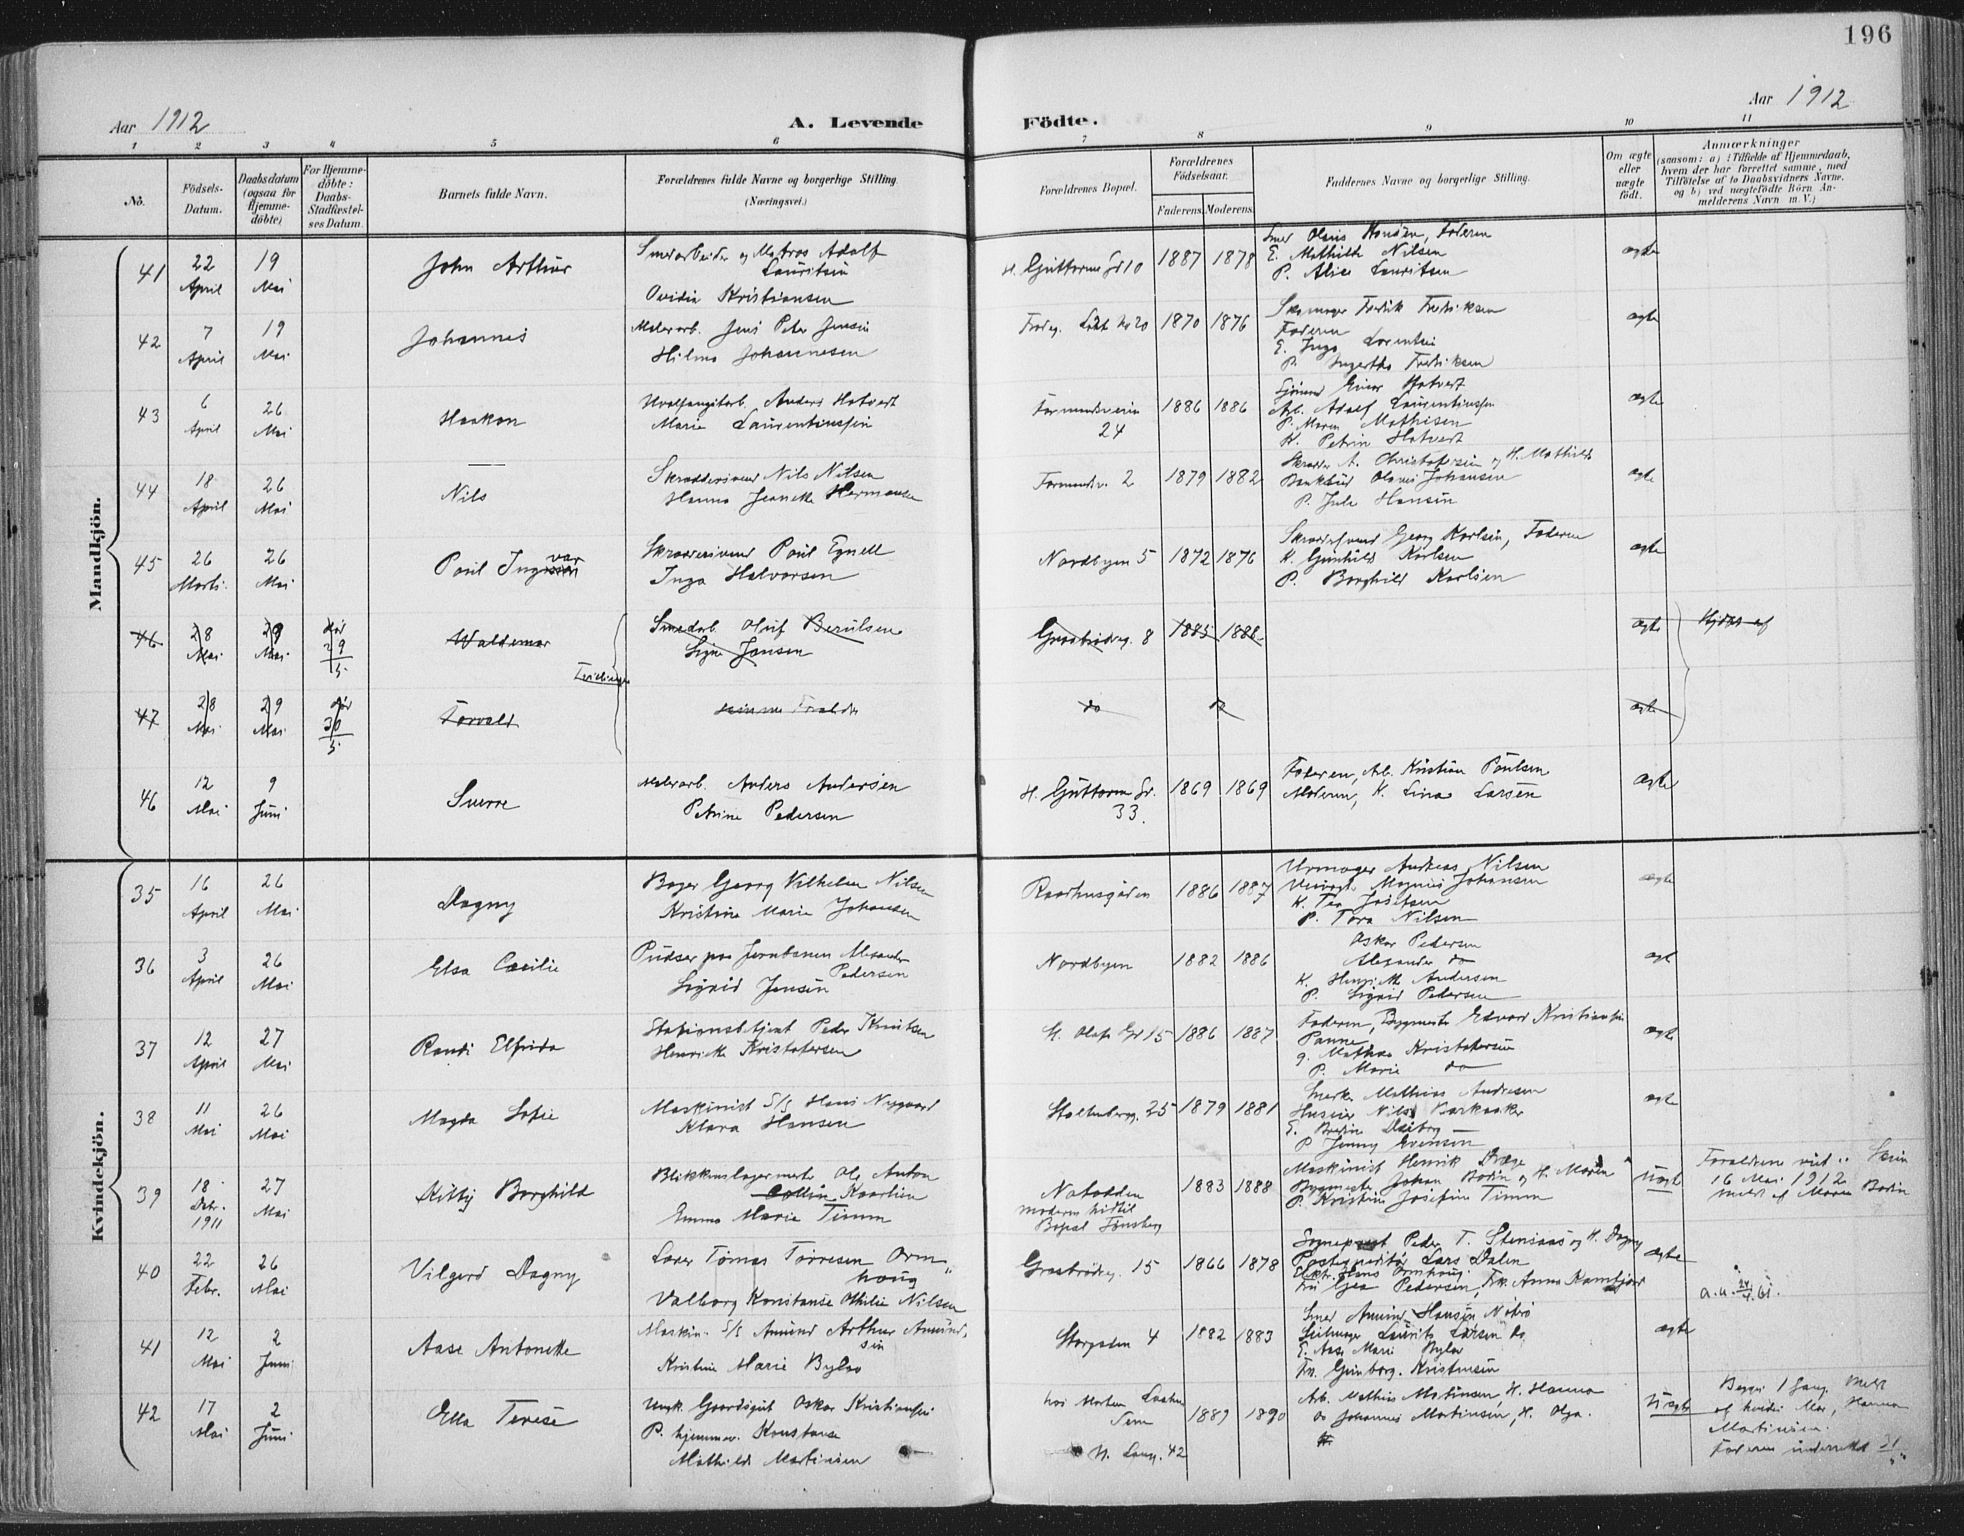 196
Aar 1912
A. Levende
Födte.
Aar 1912
1 2 3 4 5 6 7 8 9 10 11
No.
Födsels-
Datum.
Daabsdatum
(ogsaa for
Hjemme-
döbte)
For Hjemme-
döbte:
Daabs-
Stadfæstel-
ses Datum.
Barnets fulde Navn.
Forældrenes fulde Navne og borgerlige Stilling.
(Næringsvei.)
Forældrenes Bopæl.
Forældrenes
Födselsaar.
Faderens. Moderens.
Faddernes Navne og borgerlige Stilling.
Om ægte
eller
uægte
födt.
Anmærkninger
(saasom: a) i Tilfælde af Hjemmedaab,
hvem der har forrettet samme, med
Tilföielse af to Daabsvidners Navne,
og b) ved uægtefödte Börn An-
melderens Navn m. V.)
Mandkjön.
41 22 April 19 Mai John Arthur
Smedarbeider og Matros Adolf
Lauritsen
Ovidia Kristiansen
H. Guttorms Gd 10 1887 1878
Olaus Hansen, Faderen
E. Mathilde Nilsen
P. Alice Lauritsen
ægte
42 7 April 19 Mai Johannes
Malerarb. Jens Peter Jensen
Hilma Johannesen
No 20 1870 1876
Skomager Fredrik Fredriksen
Faderen
E. Inga Lorentsen
P. Ingertha Fredriksen
ægte
43 6 April 26 Mai Haakon
Hvalfangstarb. Anders Hotvedt
Marie Laurentiussen
24 1886 1886
Einar Hotvedt
Arb. Adolf Laurentiussen
P. Maren Mathisen
K. Petrin Hotvedt
ægte
44 18 April 26 Mai Nils
Skræddersvend Nils Nilsen
Hanna Jeanette Hermansen
Farmandsv. 2 1879 1882
Skrædder A. Christofersen og H. Mathilde
Bankbud Olavus Johansen
P. Jule Hansen
ægte
45 26 Marts 26 Mai Paul Ingvar
Skræddersvend Paul Egnell
Inga Halvorsen
Nordbyen 5 1872 1876
Skræddersvend Georg Karlsen, Faderen
K. Gunhild Karlsen
P. Borghild Karlsen
ægte
46 28 Mai 29 Mai dør 29/5 Waldemar
Smedarb. Oluf Berulsen
Signe Jansen
Tvillinger
Graabrødreg. 8 1885 1888
ægte
Hjdøbt af
47 28 Mai 29 Mai dør 30/5 Torvald
samme Forældre
do do
ægte
46 12 Mai 9 Juni Sverre
Malerarb. Anders Andersen
Petrine Pedersen
H. Guttorms Gd.
33.
1869 1869
Faderen, Arb. Kristian Paulsen
Moderen, K. Lina Larsen
ægte
Kvindekjön.
35 16 April 26 Mai Dagny
Bager Georg Vilhelm Nilsen
Kristine Marie Johansen
Raadhusgaden 1886 1887
Urmager Andreas Nilsen
Magnus Johansen
K. Tea Josefsen
P. Tora Nilsen
ægte
36 3 April 26 Mai Elsa Cæcilie
Pudser paa Jernbanen Alexander
Pedersen
Sigrid Jensen
Nordbyen 1882 1886
Oskar Pedersen
Alexander do
K. Henriette Andersen
P. Sigrid Pedersen
37 12 April 27 Mai Randi Elfrida
Stationsbetjent Peder Knutsen
Henriette Kristofersen
St. Olafs Gd 15 1886 1887
Faderen, Bygmester Edvard Kristiansen
g. Mathea Kristofersen
P. Marie do
ægte
38 11 Mai 26 Mai Magda Sofie
Maskinist S/S Hans Nygaard
Klara Hansen
Stoltenbergg. 25 1879 1881
Mathias Andresen
Huseier Nils Barkaaker
E. Berthe Dalborg
P. Jenny Evensen
ægte
39 18 Debr. 1911 27 Mai Kitty Borghild
Blikkenslagermester Ole Anton
Collin Kaarlien
Emma Marie Timm
Notodden
moderen hidtil
Bopæl Tønsberg
1883 1888
Maskinist Henrik
Bygmester Johan Bodin og H. Maren
P. Kristine Josefine Timm
Uægte
Forældrene viet i Skien
16 Mai 1912
meldt af Maren Bodin
40 22 Febr. 26 Mai Vilgerd Dagny
Tomas Torresen Orm-
haug
Valborg Konstanse Othilie Nilsen
Graabrødreg. 15 1866 1878
Sogneprest Peder T. Stensaas og H. Dagny
Lars Dalen
Hans Ormhaug
Pedersen, Frk. Anna Ramfjord
ægte
a.u. 24/4.61.
41 12 Mai 2 Juni Aase Antonette
Maskin. S/S Amund Arthur Amund-
sen
Kristine Marie Bylao
Storgaden 4 1882 1883
Amund Hansen Nøtrø
Seilmager Laurits Larsen do
E. Aase Marie Bylao
Fr. Gunborg Kristensen
ægte
42 17 Mai 2 Juni Ella Terese
Ungk. Gaardsgut Oskar Kristiansen
P. hjemmev. Konstanse
Mathilde Martinsen
hos Morten
Sem
N. Lang. 42
1889 1890
Arb. Mathias Martinsen, H. Hanna
do Johannes Martinsen, H. Olga.
Uægte
Begge 1 Gang. Meldt
af Hanna
Martinsen.
Faderen underrettet